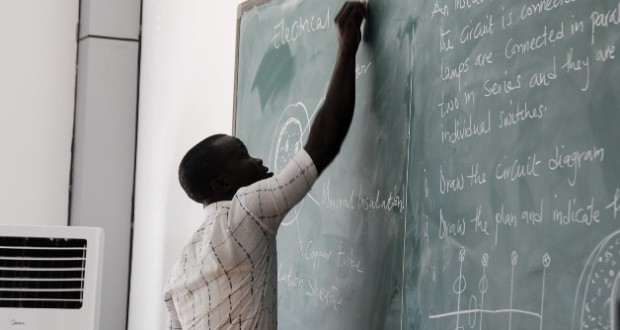 Electrical
Copper tube
An
the circuit is connec
lamps are connected in paral
two in series and they are
individual switches.
Draw the circuit diagram
Draw the plan and indicate
Midea